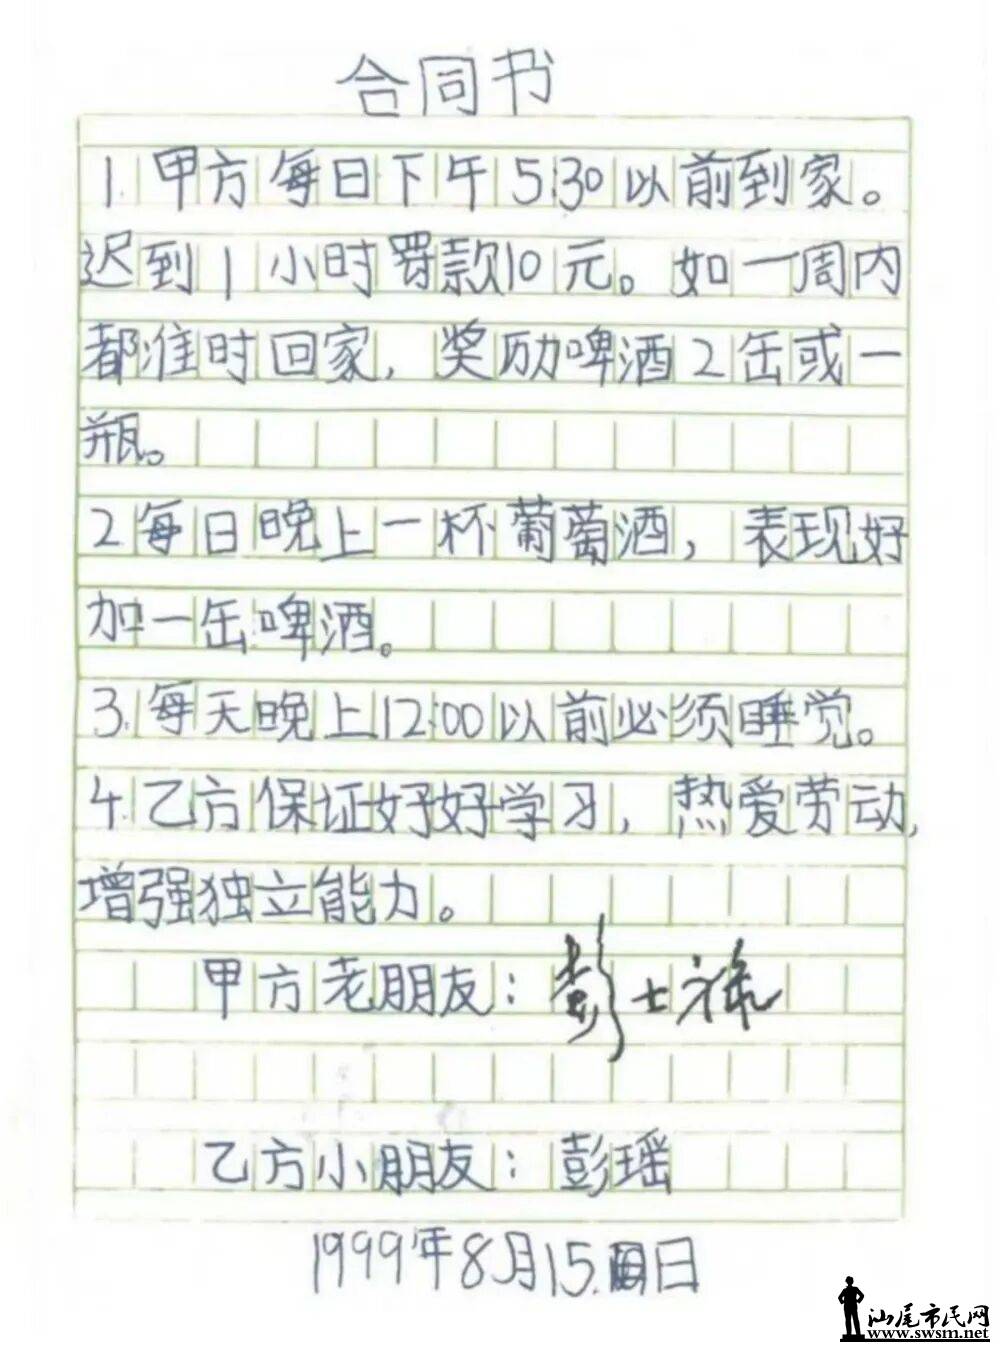 合同书
1.甲方每日下午5:30以前到家。
迟到1小时罚款10元。如一周内
都准时回家，奖励啤酒2缶或一
瓶。
2每日晚上一杯葡萄酒，表现好
加一缶啤酒。
3.每天晚上12:00以前必须睡觉。
4.乙方保证好好学习，热爱劳动,
增强独立能力。
甲方老朋友：彭士禄
乙方小朋友：彭瑶
1999年8月15.日
汕尾市民网
www.swsm.net